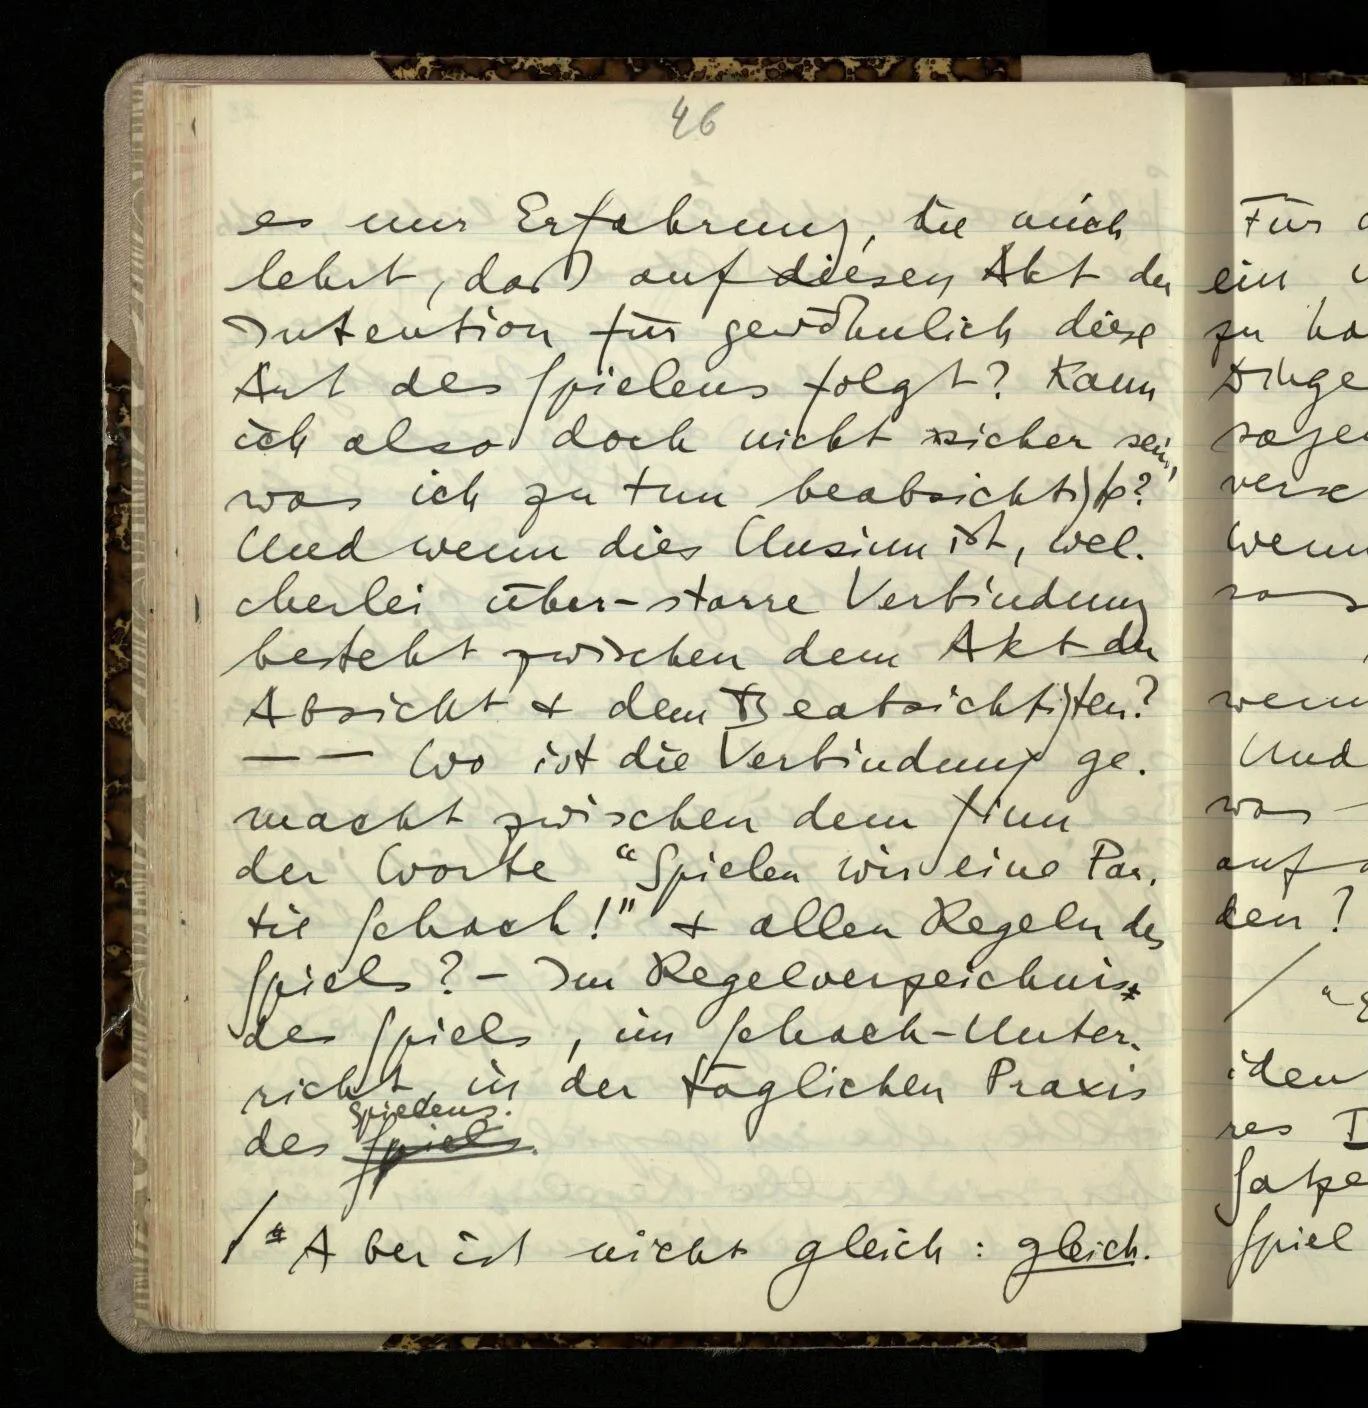 46
es nur Erfahrung, die mich
lehrt, daß auf diesen Akt der
Intention für gewöhnlich diese
Art des Spielens folgt? Kann
ich also doch nicht sicher sein,
was ich zu tun beabsichtigte?
Und wenn dies Unsinn ist, wel-
cherlei über-starre Verbindung
besteht zwischen dem Akt der
Absicht & dem Beabsichtigten?
—— Wo ist die Verbindung ge-
macht zwischen dem Sinn
der Worte "Spielen wir eine Par-
tie Schach!" & allen Regeln des
Spiels? – Im Regelverzeichnis
des Spiels, im Schach-Unter-
richt, in der täglichen Praxis
Spielens.
des Spiels.
/* Aber ist nicht gleich: gleich.
Für
ein
zu
Dinge
sagen
wenn
Und
was —
auf
den?
/
res
Spiel